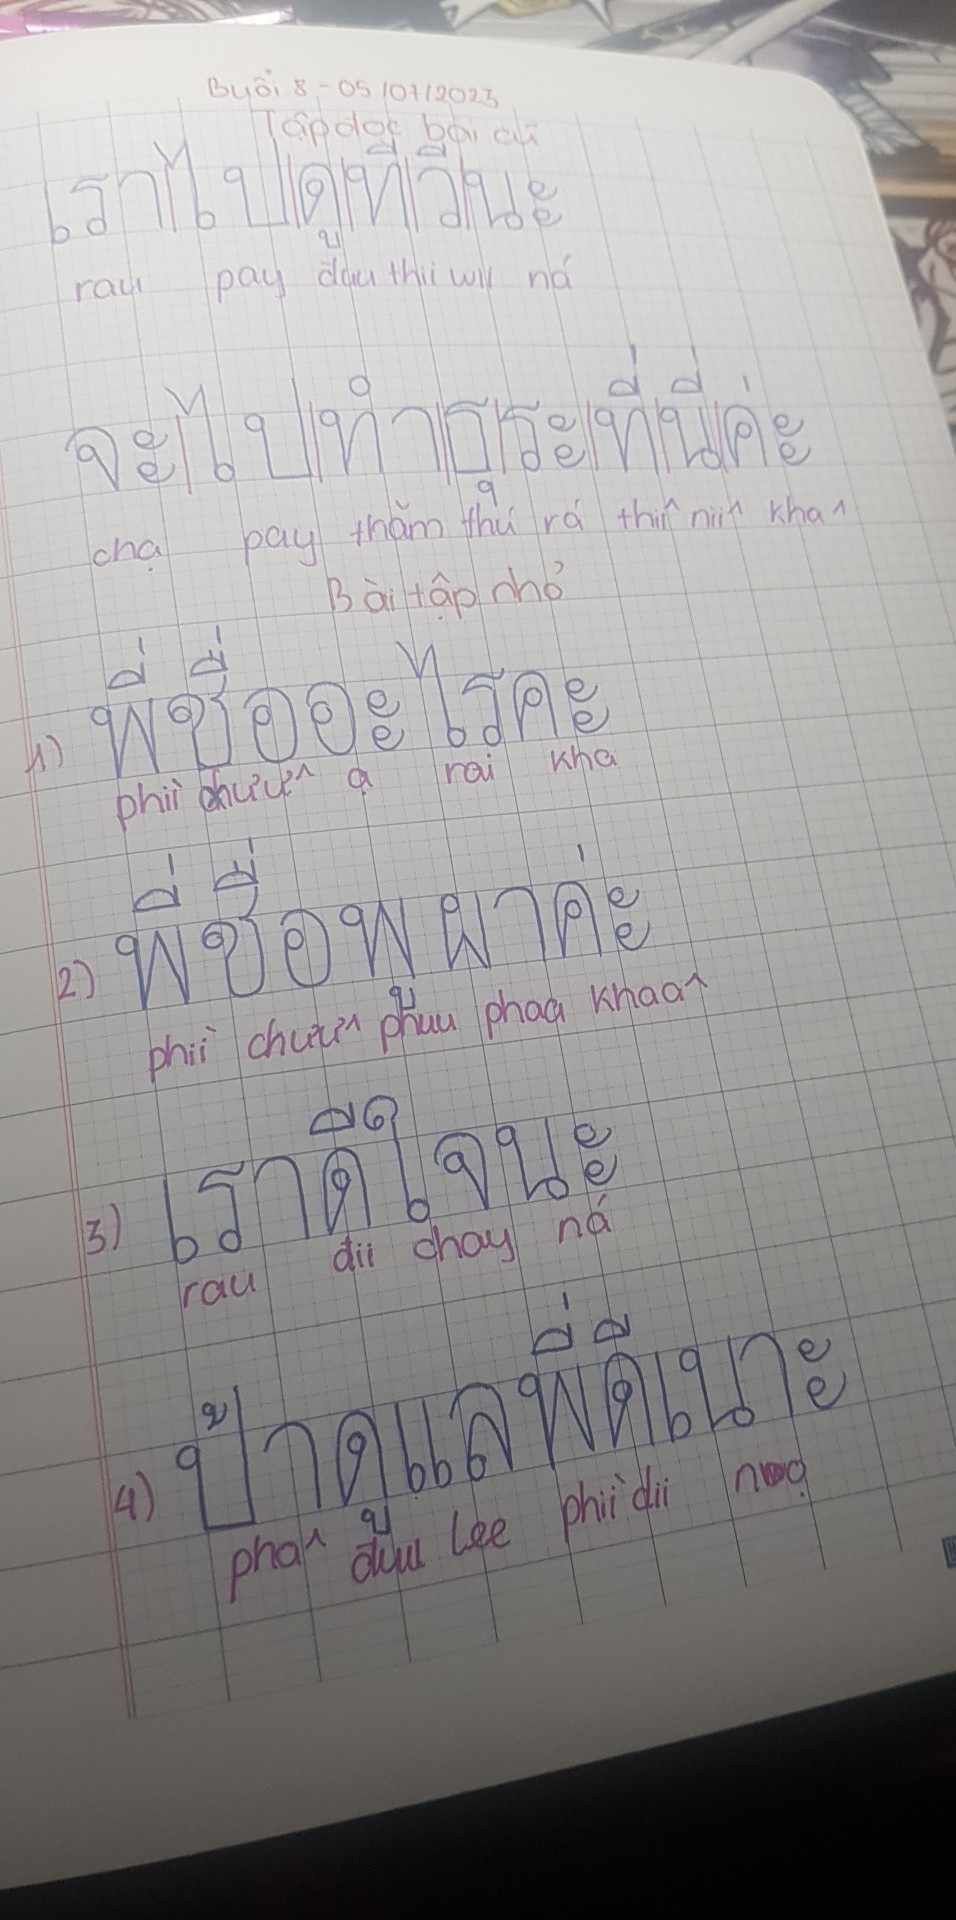 Buổi 8 - 05/07/2023
Tập đọc bài cũ
เราไปดูทีวีนะ
rau pay duu thii wii ná
จะไปทำธุระที่นี่ค่ะ
chạ pay thăm thú rá thiî niî kha^
Bài tập nhỏ
1) พี่ชื่ออะไรคะ
phiì chưư^ ạ rai kha
2) พี่ชื่อพูผาค่ะ
phiì chưư^ phuu phaa khaa^
3) เราดีใจนะ
rau dii chay ná
4) ป้าดูแลพี่ดีเนาะ
pha^ duu lee phiì dii